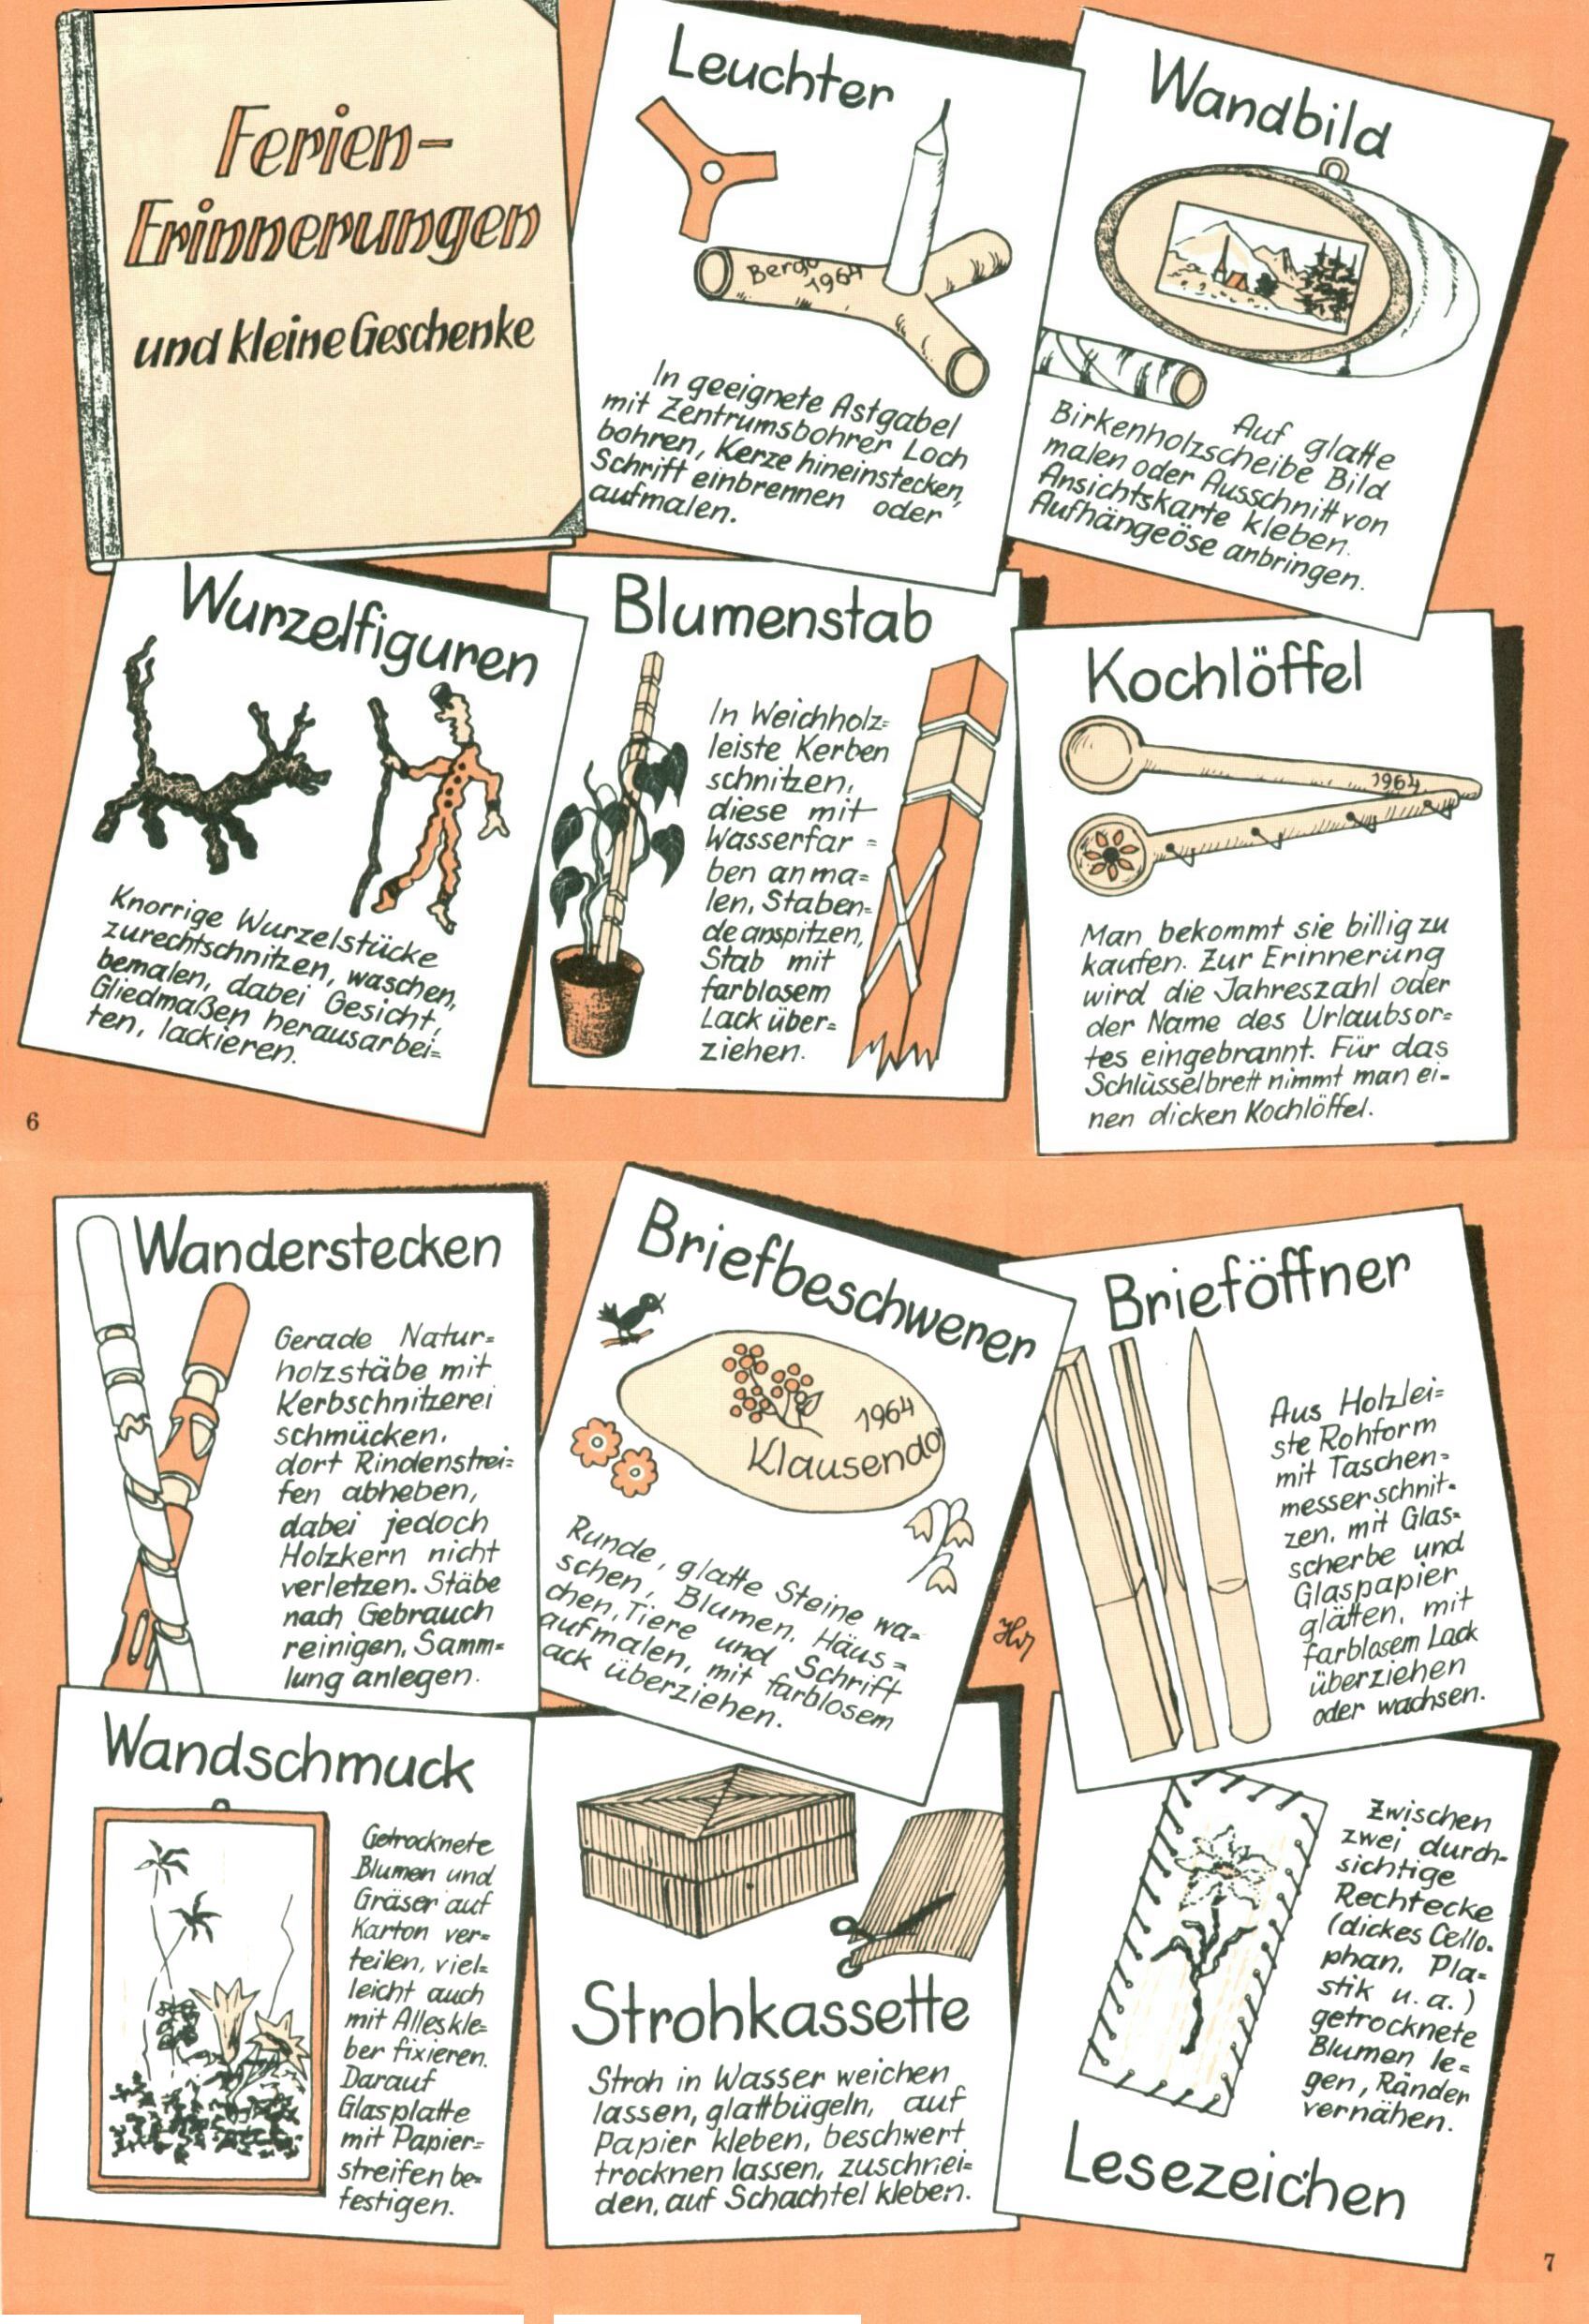 Ferien-
Erinnerungen
und kleine Geschenke
Leuchter
Berg
1964
In geeignete Astgabel
mit Zentrumsbohrer Loch
bohren, Kerze hineinstecken,
Schrift einbrennen oder
aufmalen.
Wandbild
Auf glatte
Birkenholzscheibe Bild
malen oder Ausschnitt von
Ansichtskarte kleben.
Aufhängeöse anbringen.
Wurzelfiguren
Knorrige Wurzelstücke
zurechtschnitzen, waschen,
bemalen, dabei Gesicht,
Gliedmaßen herausarbei=
ten, lackieren.
Blumenstab
In Weichholz=
leiste Kerben
schnitzen,
diese mit
Wasserfar=
ben anma=
len, Staben=
de anspitzen,
Stab mit
farblosem
Lack über=
ziehen.
Kochlöffel
1964
Man bekommt sie billig zu
kaufen. Zur Erinnerung
wird die Jahreszahl oder
der Name des Urlaubsor=
tes eingebrannt. Für das
Schlüsselbrett nimmt man ei-
nen dicken Kochlöffel.
6
Wanderstecken
Gerade Natur=
holzstäbe mit
Kerbschnitzerei
schmücken,
dort Rindenstrei=
fen abheben,
dabei jedoch
Holzkern nicht
verletzen. Stäbe
nach Gebrauch
reinigen, Samm=
lung anlegen.
Briefbeschwerer
1964
Klausendo
Runde, glatte Steine wa=
schen, Blumen, Häus=
chen, Tiere und Schrift
aufmalen, mit farblosem
ack überziehen.
Brieföffner
Aus Holzlei=
ste Rohform
mit Taschen=
messer schnit-
zen, mit Glas=
scherbe und
Glaspapier
glätten, mit
farblosem Lack
überziehen
oder wachsen.
Wandschmuck
Getrocknete
Blumen und
Gräser auf
Karton ver=
teilen, viel=
leicht auch
mit Alleskle=
ber fixieren.
Darauf
Glasplatte
mit Papier=
streifen be=
festigen.
Strohkassette
Stroh in Wasser weichen
lassen, glattbügeln, auf
Papier kleben, beschwert
trocknen lassen, zuschnei=
den, auf Schachtel kleben.
Zwischen
zwei durch-
sichtige
Rechtecke
(dickes Cello-
phan, Pla=
stik u. a.)
getrocknete
Blumen le=
gen, Ränder
vernähen.
Lesezeichen
7